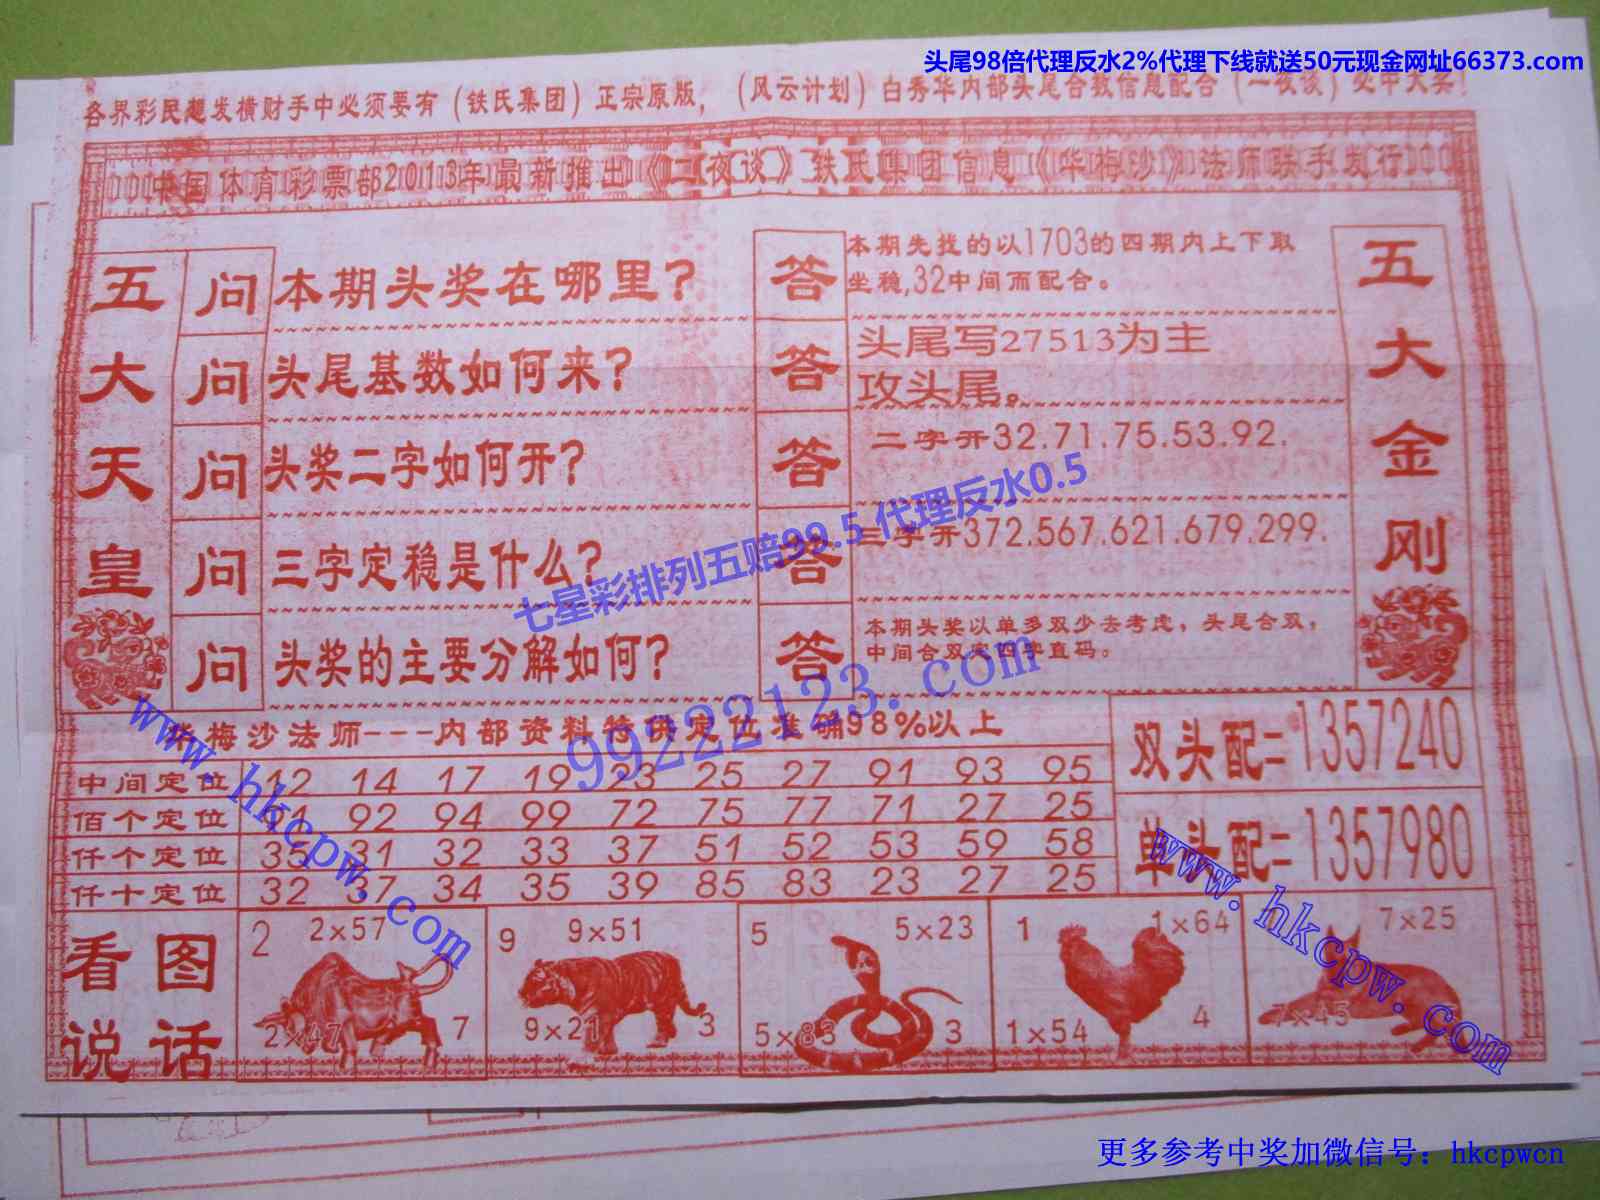 头尾98倍代理反水2%代理下线就送50元现金网址66373.com
各界彩民想发横财手中必须要有（铁氏集团）正宗原版，（风云计划）白秀华内部头尾合数信息配合（一夜谈）必中大奖！
中国体育彩票部2013年最新推出《二夜谈》铁氏集团信息《华梅沙》法师联手发行
五大天皇
问 本期头奖在哪里？
答 本期先找的以1703的四期内上下取
坐稳,32中间而配合。
问 头尾基数如何来？
答 头尾写27513为主
攻头尾。
问 头奖二字如何开？
答 二字开32.71.75.53.92.
问 三字定稳是什么？
答 三字开372.567.621.679.299.
问 头奖的主要分解如何？
答 本期头奖以单多双少去考虑，头尾合双，
中间合双定四字直码。
五大金刚
七星彩排列五赔99.5 代理反水0.5
99222123.com
华梅沙法师---内部资料特供定位准确98%以上
中间定位 12 14 17 19 23 25 27 91 93 95
佰个定位 91 92 94 99 72 75 77 71 27 25
仟个定位 35 31 32 33 37 51 52 53 59 58
仟十定位 32 37 34 35 39 85 83 23 27 25
双头配=1357240
单头配=1357980
www.hkcpw.com
www.hkcpw.com
看图说话
2 2×57
2×47 7
9 9×51
9×21 3
5 5×23
5×83 3
1 1×64
1×54 4
7×25
7×45
更多参考中奖加微信号：hkcpwcn